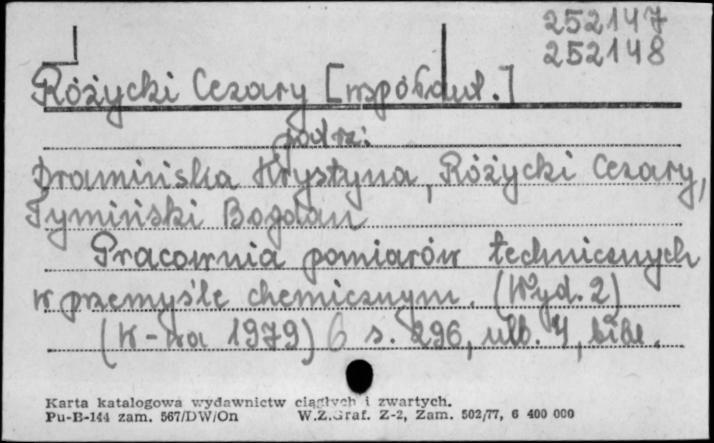 252147
252148
Różycki Cezary [współaut.]
podrz:
Dramińska Krystyna, Różycki Cezary,
Tymiński Bogdan
Pracownia pomiarów technicznych
w przemyśle chemicznym. (Wyd. 2)
(W-wa 1979) 6 s. 296, nlb. 4, bibl.
Karta katalogowa wydawnictw ciągłych i zwartych.
Pu-B-144 zam. 567/DW/On W.Z.Graf. Z-2, Zam. 502/77, 6 400 000